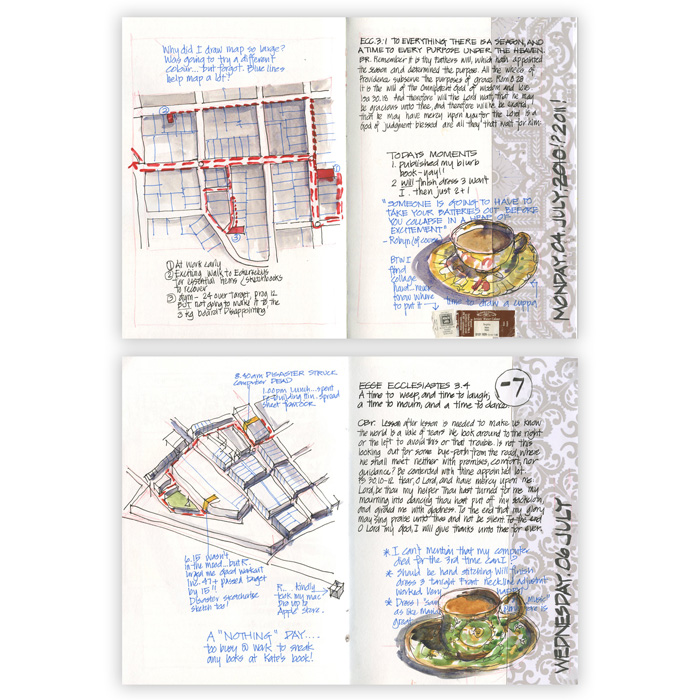 Why did I draw map so large?
Was going to try a different
colour... but forgot. Blue lines
help map a lot?
②
①
③
① At work early
② Exciting walk to Eckersleys
for essential items / sketchbooks
to recover
③ Gym - 24 over target, prog 12
BUT not going to make it to the
3 kg board! Disappointing
ECC. 3:1 TO EVERYTHING THERE IS A SEASON, AND
A TIME TO EVERY PURPOSE UNDER THE HEAVEN.
Remember it is thy Father's will, which hath appointed
the season and determined the purpose. All the wheels of
Providence subserve the purposes of grace Rom 8.28
It is the will of the Omnipotent God of wisdom and love
Isa 30.18 And therefore will the Lord wait, that he may
be gracious unto thee, and therefore will he be exalted,
that he may have mercy upon you for the Lord is a
God of judgment blessed are all they that wait for him.
TODAYS MOMENTS
1. published my blurb
book - yay!!
2 will finish dress 3 want
1. then just 2+1
"SOMEONE IS GOING TO HAVE TO
TAKE YOUR BATTERIES OUT BEFORE
YOU COLLAPSE IN A HEAP OF
EXCITEMENT"
- Robyn (of course)
BTW I
find
collage
hard - must
know where
to put it → time to draw a cuppa
MONDAY, 04 JULY, 2010!? 2011!
8.40am DISASTER STRUCK
computer DEAD
1.00pm Lunch... spent
re-building fin. spread
sheet from book
6.15 wasn't
in the mood... but R.
bribed me. Good workout
Inc. 47+ passed target
by 15!!
Disaster sketchwise
sketch too!
R... kindly
took my mac
pro up to
Apple store.
A "NOTHING" DAY....
too busy @ work to sneak
any looks at Kate's book!
-7
ECCLESIASTES 3.4
A time to weep, and time to laugh,
a time to mourn, and a time to dance.
Lesson after lesson is needed to make us know
the world is a vale of tears. We look around to the right
or the left to avoid this or that trouble. Is not this
looking out for some bye-path from the road, where
we shall meet neither with promises, comfort, nor
guidance? Be contented with thine appointed lot.
Ps 30.10-12 Hear, O Lord, and have mercy upon me.
Lord, be thou my helper Thou hast turned for me my
mourning into dancing thou hast put off my sackcloth,
and girded me with gladness. To the end that my glory
may sing praise unto thee and not be silent. To the end
O Lord my God, I will give thanks unto thee for ever.
* I can't mention that my computer
died for the 3rd time can I?
* Should be hand stitching. Will finish
dress 3 tonight. Front neckline adjustment
worked very
* Dress 1
great
WEDNESDAY, 06 JULY